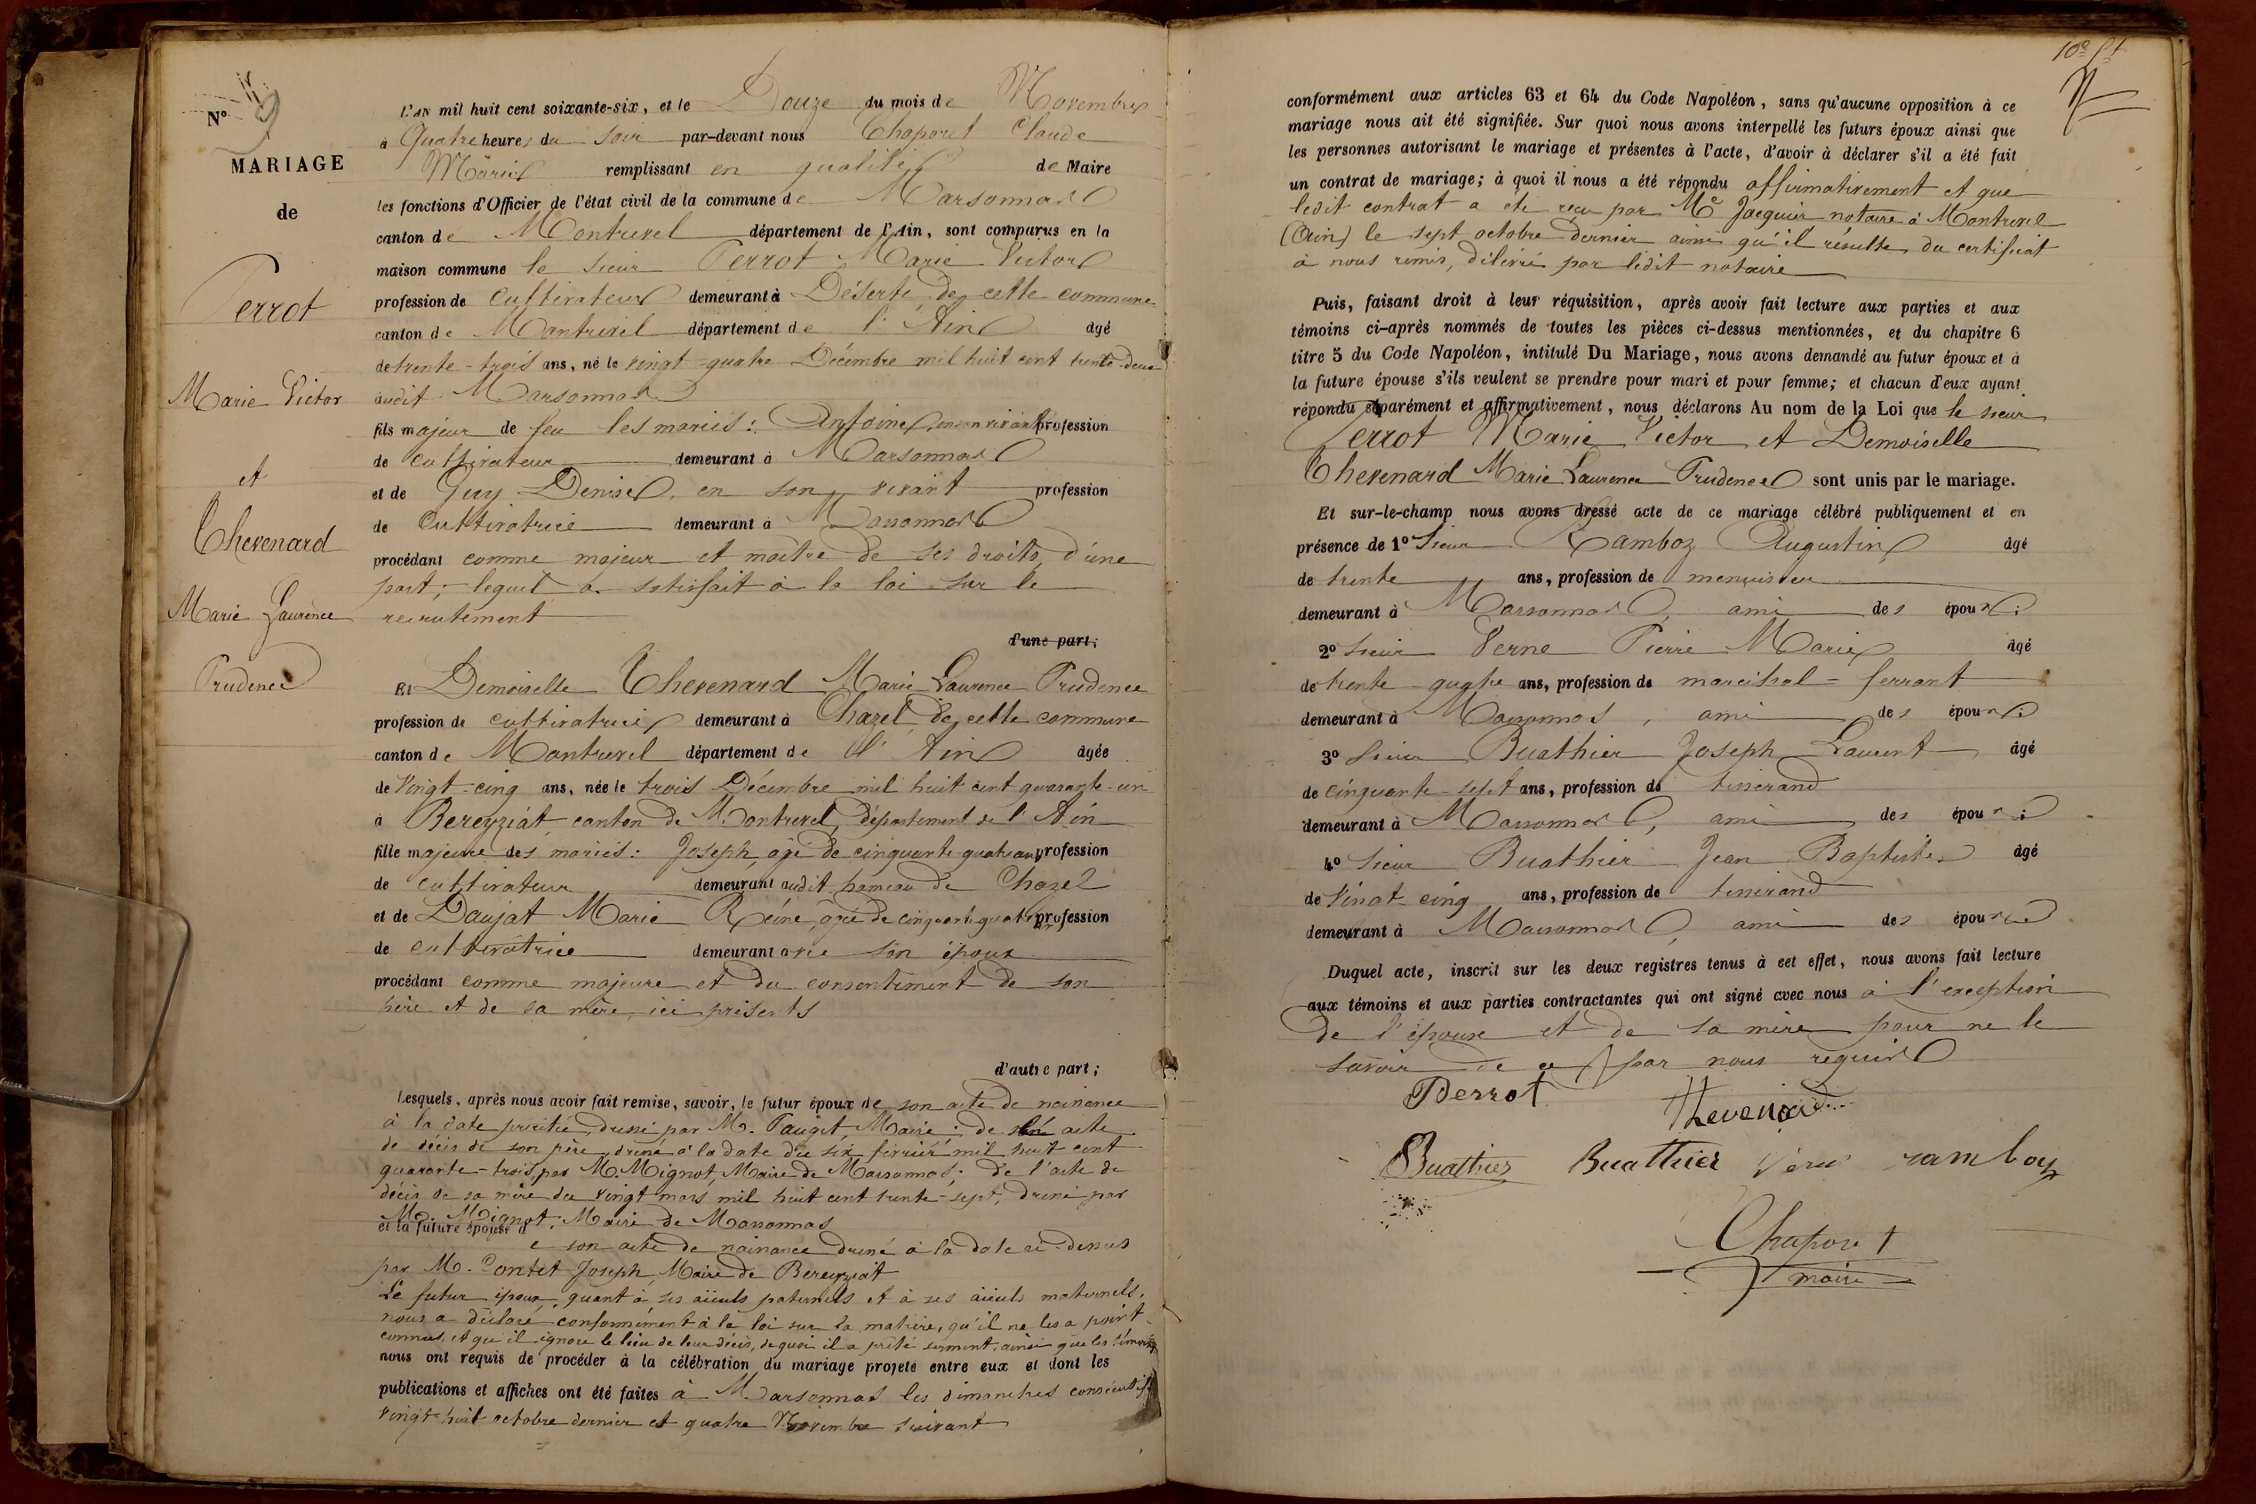 N° 9
MARIAGE
de
Perrot
Marie Victor
et
Thevenard
Marie Laurence
Prudence
L'AN mil huit cent soixante-six, et le Douze du mois de Novembre
à Quatre heures du soir par-devant nous Chaporet Claude
Marie remplissant en qualité de Maire
les fonctions d'Officier de l'état civil de la commune de Marsonnas
canton de Montrevel département de l'Ain, sont comparus en la
maison commune le sieur Perrot Marie Victor
profession de Cultivateur demeurant à Déserte, de cette commune
canton de Montrevel département de l'Ain âgé
de trente-trois ans, né le vingt-quatre Décembre mil huit cent trente-deux
audit Marsonnas
fils majeur de feu les mariés: Antoine, en son vivant profession
de cultivateur demeurant à Marsonnas
et de Guy Denise, en son vivant profession
de Cultivatrice demeurant à Marsonnas
procédant comme majeur et maître de ses droits, d'une
part; lequel a satisfait à la loi sur le
recrutement
d'une part;
Et Demoiselle Thevenard Marie Laurence Prudence
profession de cultivatrice demeurant à Chazel, de cette commune
canton de Montrevel département de l'Ain âgée
de Vingt-cinq ans, née le trois Décembre mil huit cent quarante-un
à Bereyziat, canton de Montrevel, département de l'Ain
fille majeure des mariés: Joseph, âgé de cinquante quatre ans profession
de cultivateur demeurant audit hameau de Chazel
et de Daujat Marie Reine, âgée de cinquante quatre ans profession
de cultivatrice demeurant avec son époux
procédant comme majeure et du consentement de son
père et de sa mère, ici présents
d'autre part;
Lesquels, après nous avoir fait remise, savoir, le futur époux de son acte de naissance
à la date précitée, dressé par M. Pauget Maire; de acte
de décès de son père, dressé à la date du six février mil huit cent
quarante-trois par M. Mignot, Maire de Marsonnas; de l'acte de
décès de sa mère du vingt mars mil huit cent trente-sept, dressé par
M. Mignot, Maire de Marsonnas
et la future épouse d
e son acte de naissance dressé à la date ci-dessus
par M. Pontet Joseph, Maire de Bereyziat
Le futur époux, quant à ses aïeuls paternels et à ses aïeuls maternels,
nous a déclaré conformément à la loi sur la matière, qu'il ne les a point
connus, et qu'il ignore le lieu de leur décès, de quoi il a prêté serment, ainsi que les témoins
nous ont requis de procéder à la célébration du mariage projeté entre eux et dont les
publications et affiches ont été faites à Marsonnas les dimanches consécutifs
vingt-huit octobre dernier et quatre Novembre suivant
conformément aux articles 63 et 64 du Code Napoléon, sans qu'aucune opposition à ce
mariage nous ait été signifiée. Sur quoi nous avons interpellé les futurs époux ainsi que
les personnes autorisant le mariage et présentes à l'acte, d'avoir à déclarer s'il a été fait
un contrat de mariage; à quoi il nous a été répondu affirmativement et que
ledit contrat a été reçu par Me Jacquier notaire à Montrevel
(Ain) le sept octobre dernier ainsi qu'il résulte du certificat
à nous remis, délivré par ledit notaire
Puis, faisant droit à leur réquisition, après avoir fait lecture aux parties et aux
témoins ci-après nommés de toutes les pièces ci-dessus mentionnées, et du chapitre 6
titre 5 du Code Napoléon, intitulé Du Mariage, nous avons demandé au futur époux et à
la future épouse s'ils veulent se prendre pour mari et pour femme; et chacun d'eux ayant
répondu séparément et affirmativement, nous déclarons Au nom de la Loi que le sieur
Perrot Marie Victor et Demoiselle
Thevenard Marie Laurence Prudence sont unis par le mariage.
Et sur-le-champ nous avons dressé acte de ce mariage célébré publiquement et en
présence de 1° Sieur Ramboz Augustin âgé
de trente ans, profession de menuisier
demeurant à Marsonnas, ami des époux;
2° sieur Verne Pierre Marie âgé
de trente quatre ans, profession de maréchal-ferrant
demeurant à Marsonnas, ami des époux;
3° sieur Buathier Joseph Laurent âgé
de cinquante-sept ans, profession de tisserand
demeurant à Marsonnas, ami des époux;
4° sieur Buathier Jean Baptiste âgé
de Vingt-cinq ans, profession de tisserand
demeurant à Marsonnas, ami des époux
Duquel acte, inscrit sur les deux registres tenus à cet effet, nous avons fait lecture
aux témoins et aux parties contractantes qui ont signé avec nous à l'exception
de l'épouse et de sa mère pour ne le
savoir de ce par nous requis
Perrot
Thevenard
Buathier Buathier Verne ramboz
Chaporet
maire